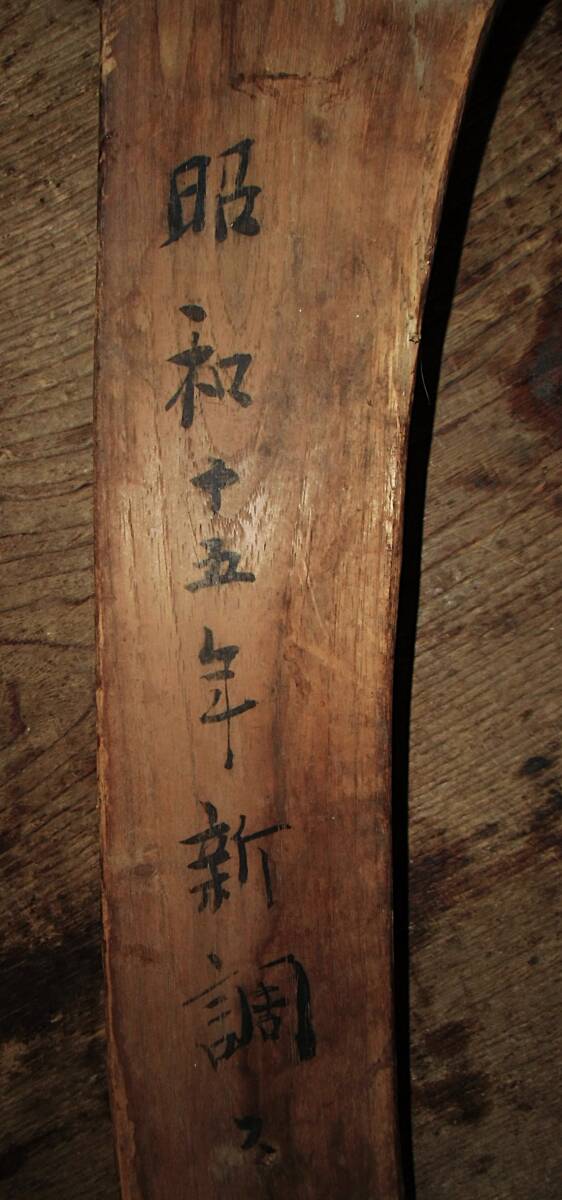 昭和十五年新調ス